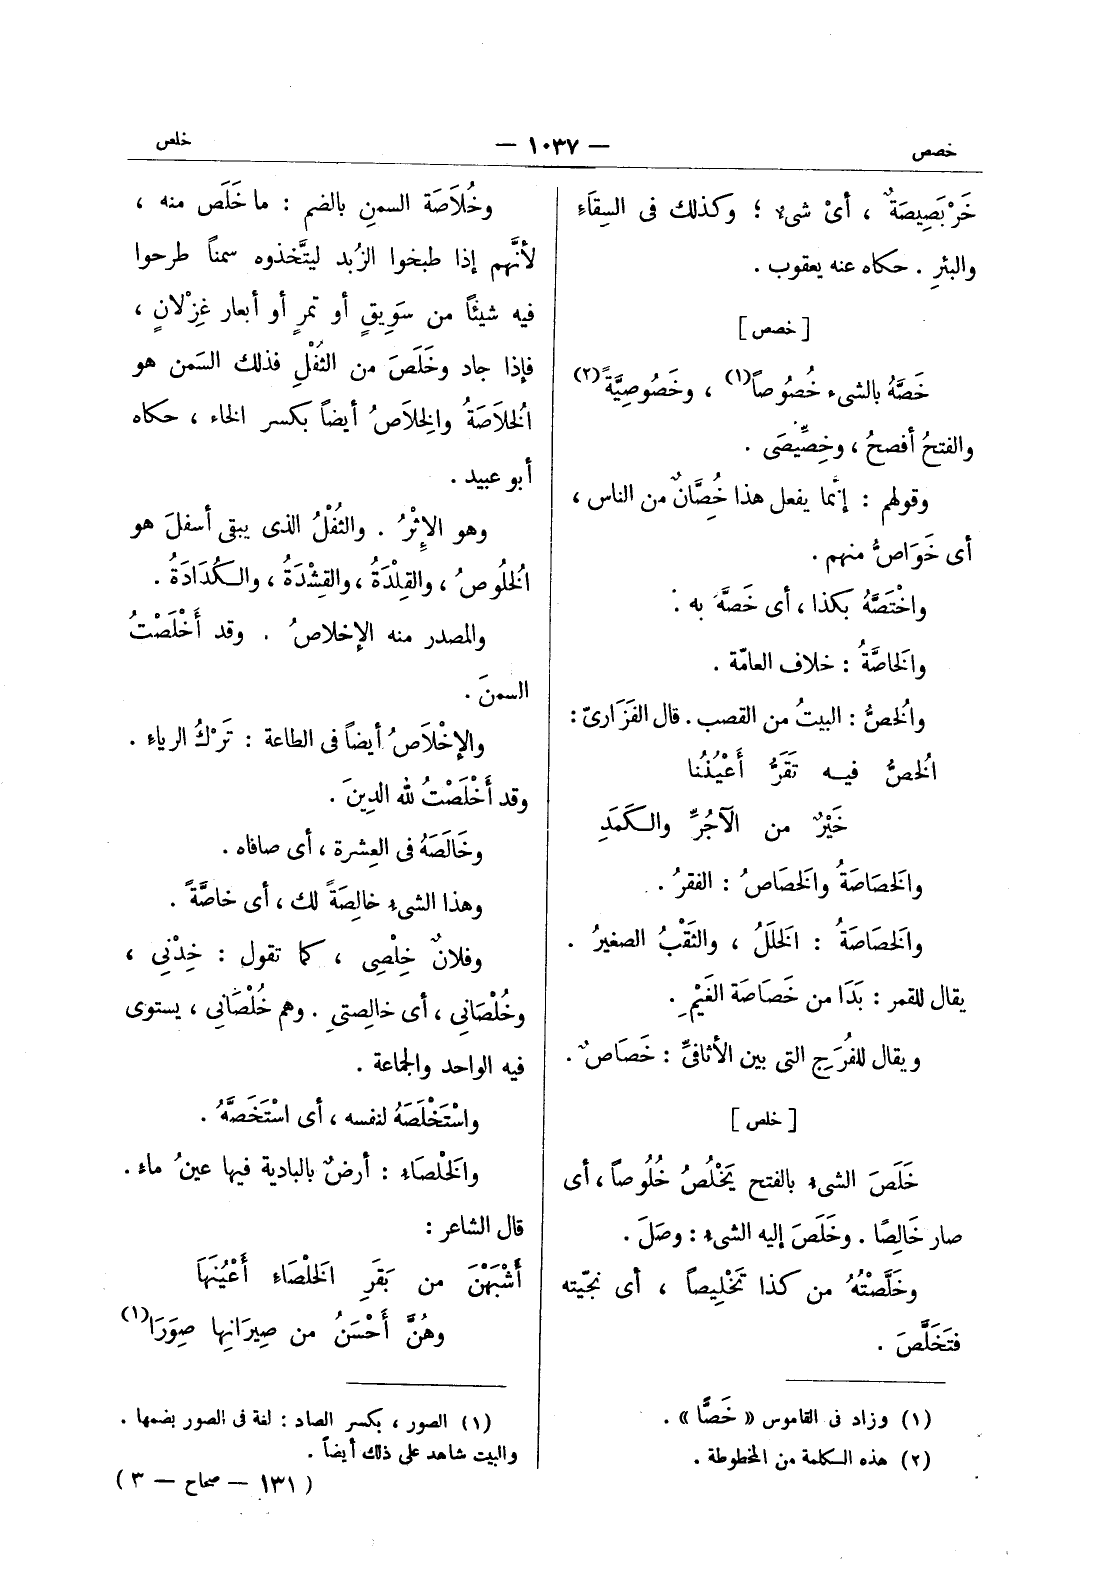 خصص
— ١٠٣٧ —
خلص
خَرْبَصِيصَةٌ ، أىْ شىء ؛ وكذلك فى السِقَاءِ
والبئرِ . حكاه عنه يعقوب .
[ خصص ]
خَصَّهُ بالشىء خُصُوصاً(١) ، وخَصُوصِيَّةً(٢)
والفتحُ أفصحُ ، وخِصِّيصَى .
وقولهم : إنَّما يفعل هذا خُصَّانٌ من الناس ،
أى خَوَاصُّ منهم .
واخْتَصَّهُ بكذا ، أى خَصَّهَ به .
والخَاصَّةُ : خلاف العامّة .
والخُصُّ : البيتُ من القصب . قال الفَزَارىّ :
الخُصُّ فيه تَقَرُّ أَعْيُنُنا
خَيْرٌ من الآجُرِّ والكَمَدِ
والخَصَاصَةُ والخَصَاصُ : الفقرُ .
والخَصَاصَةُ : الخَلَلُ ، والثَقْبُ الصغيرُ .
يقال للقمر : بَدَا من خَصَاصَة الغَيْمِ .
ويقال للفُرَجِ التى بين الأثافىِّ : خَصَاصٌ .
[ خلص ]
خَلَصَ الشىء بالفتح يَخْلُصُ خُلُوصاً ، أى
صار خَالِصًا . وخَلَصَ إليه الشىء : وصَلَ .
وخَلَّصْتُهُ من كذا تَخْلِيصاً ، أى نجّيته
فتَخَلَّصَ .
(١) وزاد فى القاموس « خَصًّا » .
(٢) هذه الكلمة من المخطوطة .
وخُلاَصَة السمنِ بالضم : ما خَلَص منه ،
لأنَّهم إذا طبخوا الزُبد ليتَّخذوه سمناً طرحوا
فيه شيئاً من سَوِيقٍ أو تمرٍ أو أبعار غِزْلانٍ ،
فإذا جاد وخَلَصَ من الثُفْلِ فذلك السَمن هو
الخُلاَصَةُ والخِلاَصُ أيضاً بكسر الخاء ، حكاه
أبو عبيد .
وهو الإِثْرُ . والثُفْلُ الذى يبقى أسفلَ هو
الخُلُوصُ ، والقِلْدَةُ ، والقِشْدَةُ ، والكُدَادَةُ .
والمصدر منه الإخلاصُ . وقد أَخْلَصْتُ
السمنَ .
والإخْلاَصُ أيضاً فى الطاعة : تَرْكُ الرياءِ .
وقد أَخْلَصْتُ لله الدينَ .
وخَالَصَهُ فى العِشرة ، أى صافاه .
وهذا الشىء خالِصَةً لك ، أى خاصَّةً .
وفلانٌ خِلْصِى ، كما تقول : خِدْنِى ،
وخُلْصَانِى ، أى خالِصتىِ . وهم خُلْصَانِى ، يستوى
فيه الواحد والجماعة .
واسْتَخْلَصَهُ لنفسه ، أى اسْتَخَصَّهُ .
والخَلْصَاءِ : أرضٌ بالبادية فيها عينُ ماءِ .
قال الشاعر :
أَشْبَهْنَ من بَقَرِ الخَلْصَاءِ أَعْيُنَهَا
وهُنَّ أَحْسَنُ من صِيرَانِها صِوَرَا(١)
(١) الصور ، بكسر الصاد : لغة فى الصور بضمها .
والبيت شاهد على ذلك أيضاً .
( ١٣١ — صحاح — ٣ )